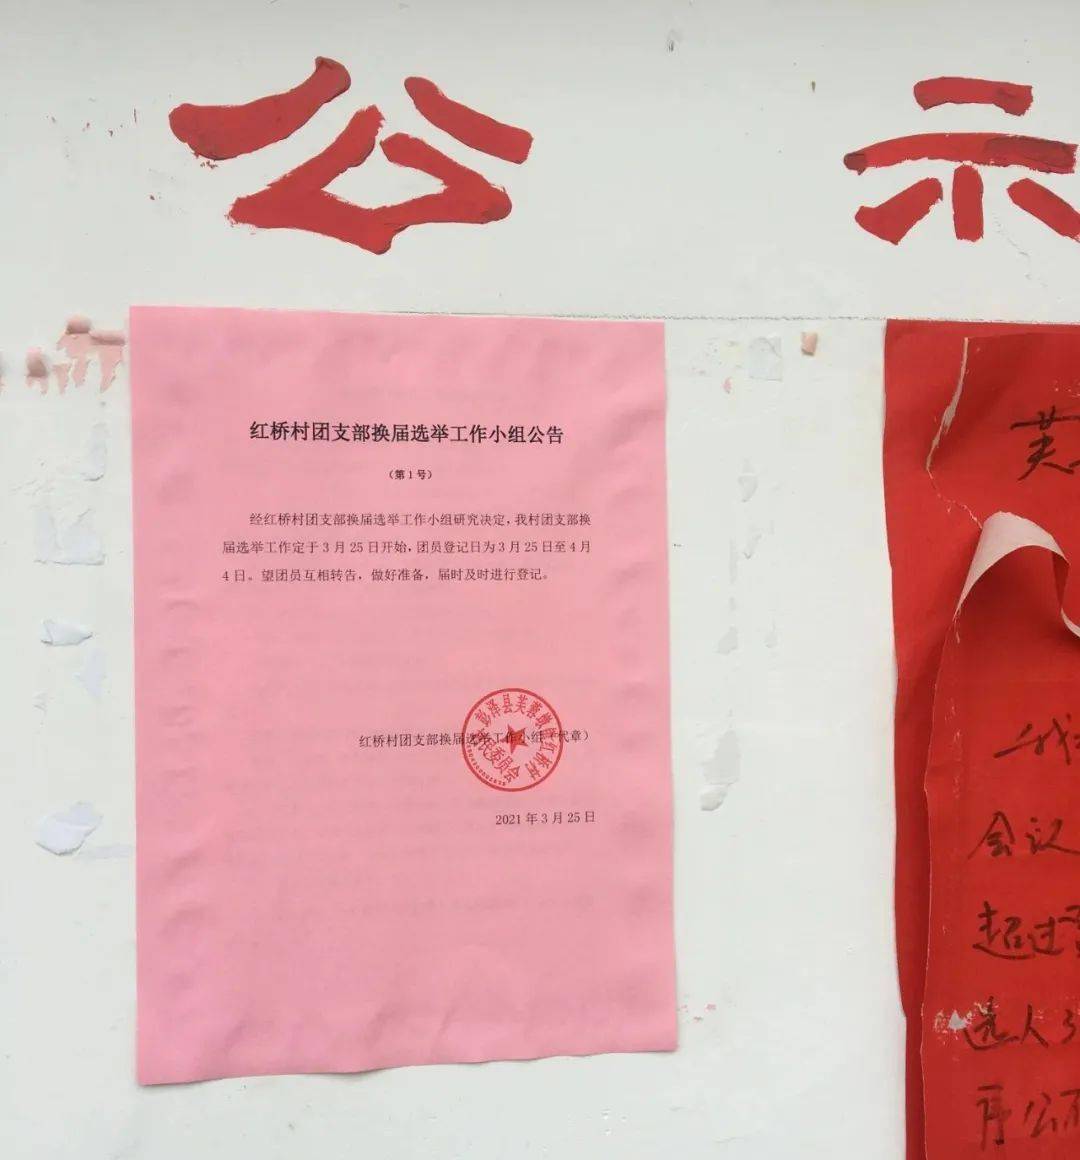 公示
红桥村团支部换届选举工作小组公告
（第1号）
经红桥村团支部换届选举工作小组研究决定，我村团支部换
届选举工作定于3月25日开始，团员登记日为3月25日至4月
4日。望团员互相转告，做好准备，届时及时进行登记。
红桥村团支部换届选举工作小组（代章）
彭泽县芙蓉墩镇红桥村
民委员会
2021年3月25日
芙
我
会议
超过
选人3
再公